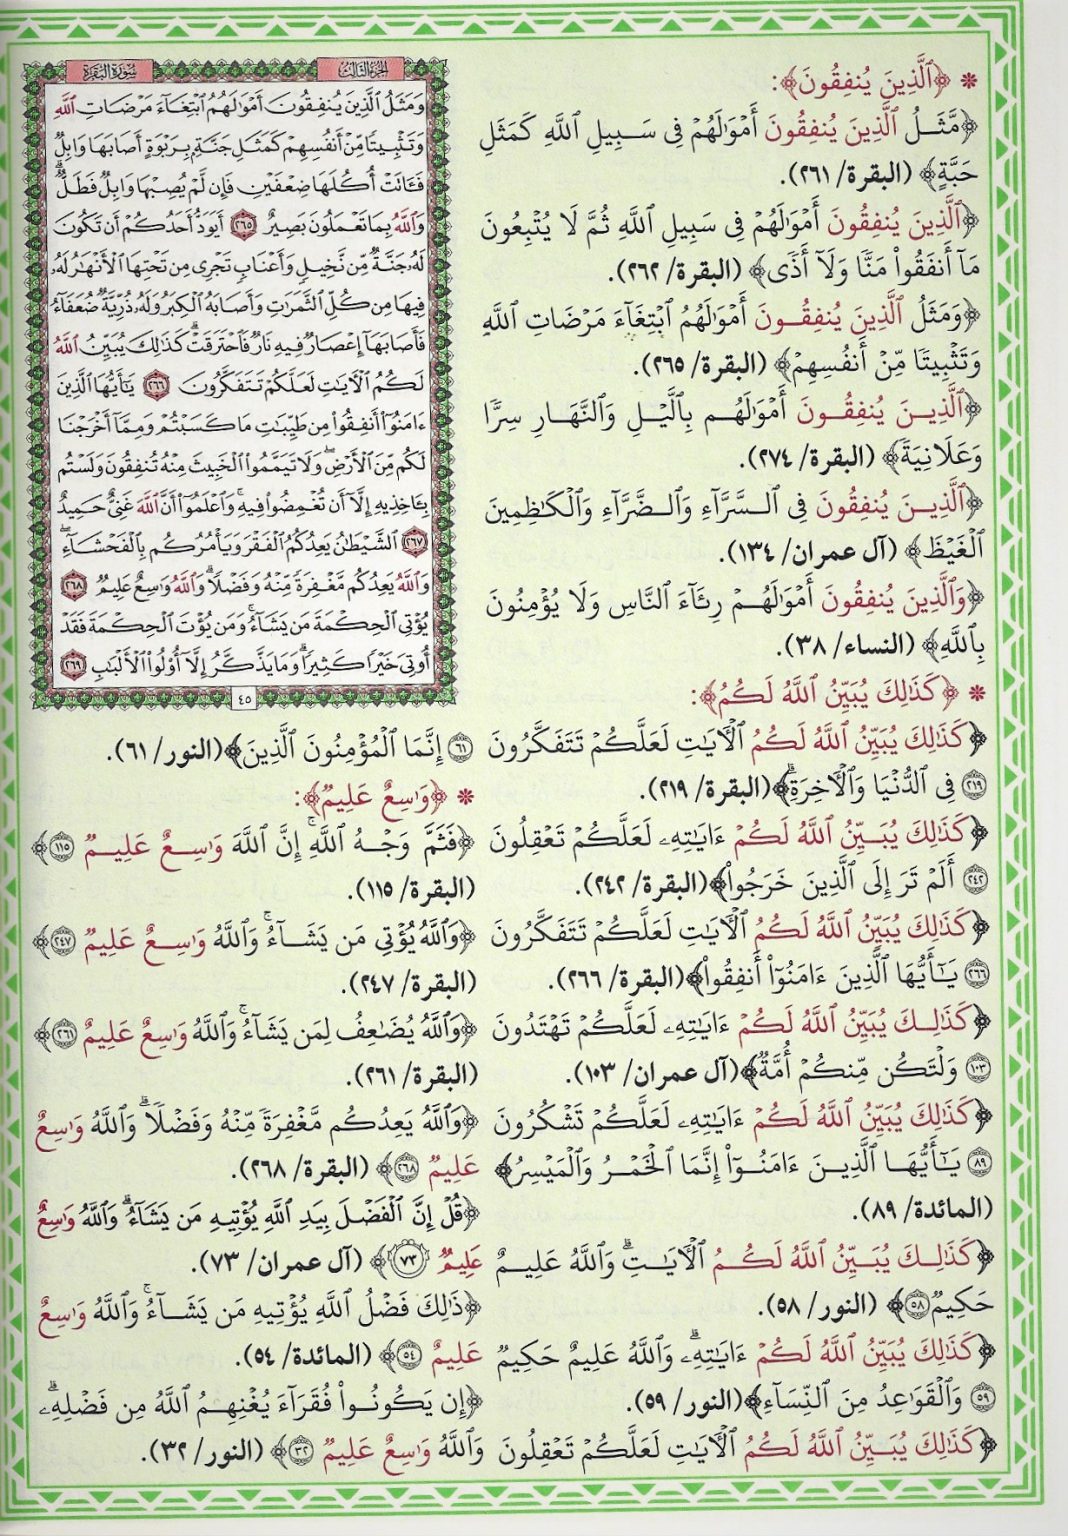 * ﴿ٱلَّذِينَ يُنفِقُونَ﴾:
﴿مَّثَلُ ٱلَّذِينَ يُنفِقُونَ أَمْوَٰلَهُمْ فِى سَبِيلِ ٱللَّهِ كَمَثَلِ
حَبَّةٍ﴾ (البقرة/ ٢٦١).
﴿ٱلَّذِينَ يُنفِقُونَ أَمْوَٰلَهُمْ فِى سَبِيلِ ٱللَّهِ ثُمَّ لَا يُتْبِعُونَ
مَآ أَنفَقُوا۟ مَنًّا وَلَآ أَذًى﴾ (البقرة/ ٢٦٢).
﴿وَمَثَلُ ٱلَّذِينَ يُنفِقُونَ أَمْوَٰلَهُمُ ٱبْتِغَآءَ مَرْضَاتِ ٱللَّهِ
وَتَثْبِيتًا مِّنْ أَنفُسِهِمْ﴾ (البقرة/ ٢٦٥).
﴿ٱلَّذِينَ يُنفِقُونَ أَمْوَٰلَهُم بِٱلَّيْلِ وَٱلنَّهَارِ سِرًّا
وَعَلَانِيَةً﴾ (البقرة/ ٢٧٤).
﴿ٱلَّذِينَ يُنفِقُونَ فِى ٱلسَّرَّآءِ وَٱلضَّرَّآءِ وَٱلْكَٰظِمِينَ
ٱلْغَيْظَ﴾ (آل عمران/ ١٣٤).
﴿وَٱلَّذِينَ يُنفِقُونَ أَمْوَٰلَهُمْ رِئَآءَ ٱلنَّاسِ وَلَا يُؤْمِنُونَ
بِٱللَّهِ﴾ (النساء/ ٣٨).
* ﴿كَذَٰلِكَ يُبَيِّنُ ٱللَّهُ لَكُمُ﴾:
﴿كَذَٰلِكَ يُبَيِّنُ ٱللَّهُ لَكُمُ ٱلْـَٔايَٰتِ لَعَلَّكُمْ تَتَفَكَّرُونَ
٢١٩ فِى ٱلدُّنْيَا وَٱلْـَٔاخِرَةِ ۗ﴾(البقرة/ ٢١٩).
﴿كَذَٰلِكَ يُبَيِّنُ ٱللَّهُ لَكُمْ ءَايَٰتِهِۦ لَعَلَّكُمْ تَعْقِلُونَ
٢٤٢ أَلَمْ تَرَ إِلَى ٱلَّذِينَ خَرَجُوا۟﴾(البقرة/ ٢٤٢).
﴿كَذَٰلِكَ يُبَيِّنُ ٱللَّهُ لَكُمُ ٱلْـَٔايَٰتِ لَعَلَّكُمْ تَتَفَكَّرُونَ
٢٦٦ يَٰٓأَيُّهَا ٱلَّذِينَ ءَامَنُوٓا۟ أَنفِقُوا۟﴾(البقرة/ ٢٦٦).
﴿كَذَٰلِكَ يُبَيِّنُ ٱللَّهُ لَكُمْ ءَايَٰتِهِۦ لَعَلَّكُمْ تَهْتَدُونَ
١٠٣ وَلْتَكُن مِّنكُمْ أُمَّةٌ﴾(آل عمران/ ١٠٣).
﴿كَذَٰلِكَ يُبَيِّنُ ٱللَّهُ لَكُمْ ءَايَٰتِهِۦ لَعَلَّكُمْ تَشْكُرُونَ
٨٩ يَٰٓأَيُّهَا ٱلَّذِينَ ءَامَنُوٓا۟ إِنَّمَا ٱلْخَمْرُ وَٱلْمَيْسِرُ﴾
(المائدة/ ٨٩).
﴿كَذَٰلِكَ يُبَيِّنُ ٱللَّهُ لَكُمُ ٱلْـَٔايَٰتِ ۗ وَٱللَّهُ عَلِيمٌ
حَكِيمٌ ٥٨﴾ (النور/ ٥٨).
﴿كَذَٰلِكَ يُبَيِّنُ ٱللَّهُ لَكُمْ ءَايَٰتِهِۦ ۗ وَٱللَّهُ عَلِيمٌ حَكِيمٌ
٥٩ وَٱلْقَوَٰعِدُ مِنَ ٱلنِّسَآءِ﴾(النور/ ٥٩).
﴿كَذَٰلِكَ يُبَيِّنُ ٱللَّهُ لَكُمُ ٱلْـَٔايَٰتِ لَعَلَّكُمْ تَعْقِلُونَ
الجزء الثالث
سورة البقرة
وَمَثَلُ ٱلَّذِينَ يُنفِقُونَ أَمْوَٰلَهُمُ ٱبْتِغَآءَ مَرْضَاتِ ٱللَّهِ
وَتَثْبِيتًا مِّنْ أَنفُسِهِمْ كَمَثَلِ جَنَّةٍۭ بِرَبْوَةٍ أَصَابَهَا وَابِلٌ
فَـَٔاتَتْ أُكُلَهَا ضِعْفَيْنِ فَإِن لَّمْ يُصِبْهَا وَابِلٌ فَطَلٌّ ۗ
وَٱللَّهُ بِمَا تَعْمَلُونَ بَصِيرٌ ٢٦٥ أَيَوَدُّ أَحَدُكُمْ أَن تَكُونَ
لَهُۥ جَنَّةٌ مِّن نَّخِيلٍ وَأَعْنَابٍ تَجْرِى مِن تَحْتِهَا ٱلْأَنْهَٰرُ لَهُۥ
فِيهَا مِن كُلِّ ٱلثَّمَرَٰتِ وَأَصَابَهُ ٱلْكِبَرُ وَلَهُۥ ذُرِّيَّةٌ ضُعَفَآءُ
فَأَصَابَهَآ إِعْصَارٌ فِيهِ نَارٌ فَٱحْتَرَقَتْ ۗ كَذَٰلِكَ يُبَيِّنُ ٱللَّهُ
لَكُمُ ٱلْـَٔايَٰتِ لَعَلَّكُمْ تَتَفَكَّرُونَ ٢٦٦ يَٰٓأَيُّهَا ٱلَّذِينَ
ءَامَنُوٓا۟ أَنفِقُوا۟ مِن طَيِّبَٰتِ مَا كَسَبْتُمْ وَمِمَّآ أَخْرَجْنَا
لَكُم مِّنَ ٱلْأَرْضِ ۖ وَلَا تَيَمَّمُوا۟ ٱلْخَبِيثَ مِنْهُ تُنفِقُونَ وَلَسْتُم
بِـَٔاخِذِيهِ إِلَّآ أَن تُغْمِضُوا۟ فِيهِ ۚ وَٱعْلَمُوٓا۟ أَنَّ ٱللَّهَ غَنِىٌّ حَمِيدٌ
٢٦٧ ٱلشَّيْطَٰنُ يَعِدُكُمُ ٱلْفَقْرَ وَيَأْمُرُكُم بِٱلْفَحْشَآءِ ۖ
وَٱللَّهُ يَعِدُكُم مَّغْفِرَةً مِّنْهُ وَفَضْلًا ۗ وَٱللَّهُ وَٰسِعٌ عَلِيمٌ ٢٦٨
يُؤْتِى ٱلْحِكْمَةَ مَن يَشَآءُ ۚ وَمَن يُؤْتَ ٱلْحِكْمَةَ فَقَدْ
أُوتِىَ خَيْرًا كَثِيرًا ۗ وَمَا يَذَّكَّرُ إِلَّآ أُو۟لُوا۟ ٱلْأَلْبَٰبِ ٢٦٩
٤٥
٦١ إِنَّمَا ٱلْمُؤْمِنُونَ ٱلَّذِينَ﴾(النور/ ٦١).
* ﴿وَٰسِعٌ عَلِيمٌ﴾:
﴿فَثَمَّ وَجْهُ ٱللَّهِ ۚ إِنَّ ٱللَّهَ وَٰسِعٌ عَلِيمٌ ١١٥﴾
(البقرة/ ١١٥).
﴿وَٱللَّهُ يُؤْتِى مَن يَشَآءُ ۚ وَٱللَّهُ وَٰسِعٌ عَلِيمٌ ٢٤٧﴾
(البقرة/ ٢٤٧).
﴿وَٱللَّهُ يُضَٰعِفُ لِمَن يَشَآءُ ۚ وَٱللَّهُ وَٰسِعٌ عَلِيمٌ ٢٦١﴾
(البقرة/ ٢٦١).
﴿وَٱللَّهُ يَعِدُكُم مَّغْفِرَةً مِّنْهُ وَفَضْلًا ۗ وَٱللَّهُ وَٰسِعٌ
عَلِيمٌ ٢٦٨﴾ (البقرة/ ٢٦٨).
﴿قُلْ إِنَّ ٱلْفَضْلَ بِيَدِ ٱللَّهِ يُؤْتِيهِ مَن يَشَآءُ ۗ وَٱللَّهُ وَٰسِعٌ
عَلِيمٌ ٧٣﴾ (آل عمران/ ٧٣).
﴿ذَٰلِكَ فَضْلُ ٱللَّهِ يُؤْتِيهِ مَن يَشَآءُ ۚ وَٱللَّهُ وَٰسِعٌ
عَلِيمٌ ٥٤﴾ (المائدة/ ٥٤).
﴿إِن يَكُونُوا۟ فُقَرَآءَ يُغْنِهِمُ ٱللَّهُ مِن فَضْلِهِۦ ۗ
وَٱللَّهُ وَٰسِعٌ عَلِيمٌ ٣٢﴾ (النور/ ٣٢).